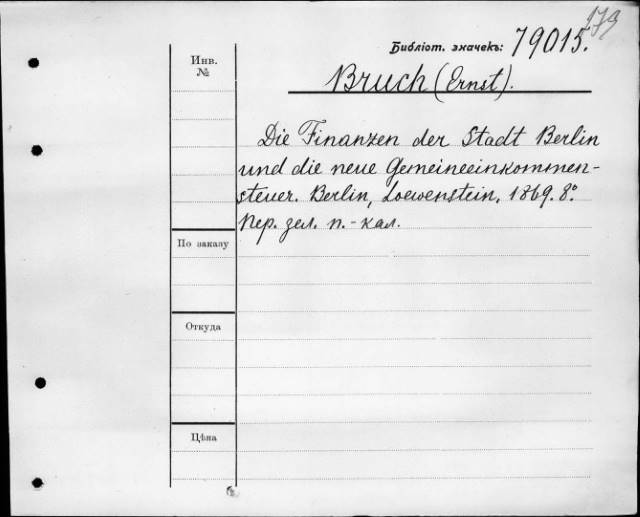 179
Библіот. значекъ: 79015.
Инв.
№
Bruch (Ernst).
Die Finanzen der Stadt Berlin
und die neue Gemeineeinkommen-
steuer. Berlin, Loewenstein, 1869. 8°.
Пер. зел. п.-кал.
По заказу
Откуда
Цѣна